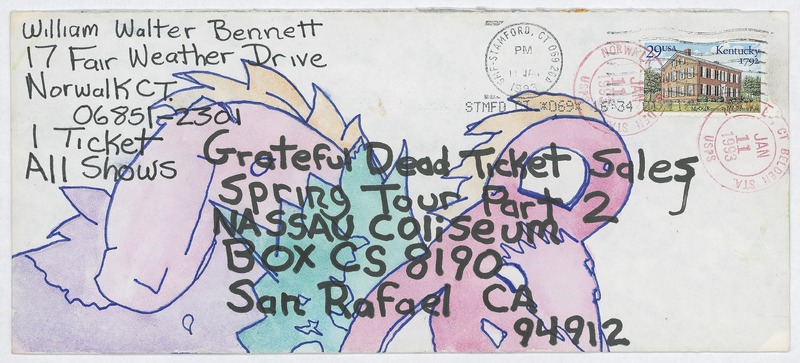 William Walter Bennett
17 Fair Weather Drive
Norwalk CT.
06851-2301
1 Ticket
All Shows
Grateful Dead Ticket Sales
Spring Tour Part 2
NASSAU Coliseum
BOX CS 8190
San Rafael CA
94912
STAMFORD, CT 069
PM
11 JAN
1993
STMFD CT *069*
29 USA
Kentucky
1792
NORWALK
JAN
11
1993
USPS
CT BELDEN STA.
JAN
11
1993
USPS